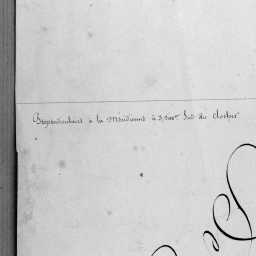 Perpendiculaire à la Méridienne à 3,500m Sud du Clocher